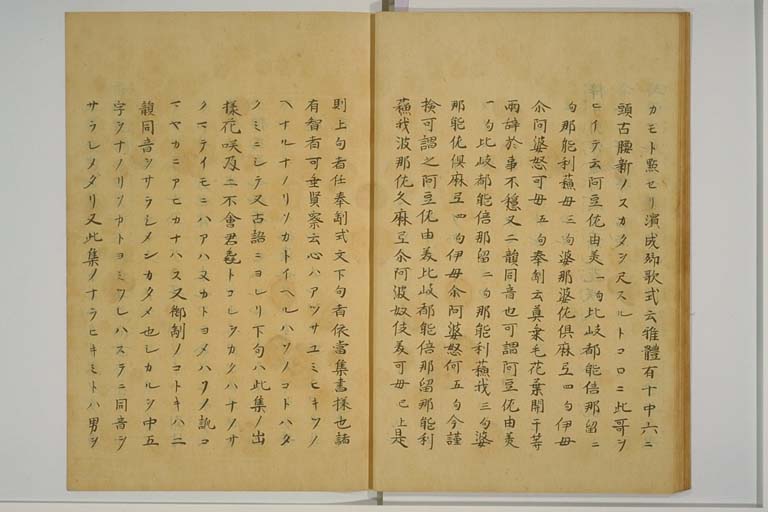 カモト點セリ濱成卿歌式云雅體有十中六ニ
頭古腰新ノスカタヲ尺スルトコロニ此哥ヲ
ヒイテ云阿豆佐由美一句比岐都能倍那留ニ
句那能利蘓毋三句婆那婆佐倶麻弖四句伊毋
尒阿婆怒可毋五句奉制云莫乗毛花葉開干等
両辞於事不穏又二韻同音也可謂阿豆佐由美
一句比岐都能倍那留二句那能利蘓我三句婆
那能佐倶麻弖四句伊毋尒阿婆怒何五句今謹
検可謂之阿豆佐由美比岐都能倍那留那能利
蘓我波那佐久麻弖尒阿波奴伎美可毋已上是
則上句者任奉制式文下句者依當集書様也諸
有智者可垂賢察云心ハアツサユミヒキツノ
ヘナルナノリソカトイヘルハソノコトハタ
クミニシテ又古語ニヨレリ下句ハ此集ノ出
様花咲及二不會君毳トコレヲカクハナノサ
クマテイモニハアハヌカトヨメハワノ訛コ
マヤカニアヒカナハス又御制ノコトキハ二
韻同音ヲサラシメンカタメ也シカルヲ中五
字ヲナノリソカトヨミツレハステニ同音ヲ
サラシメタリ又此集ノナラヒキミトハ男ヲ